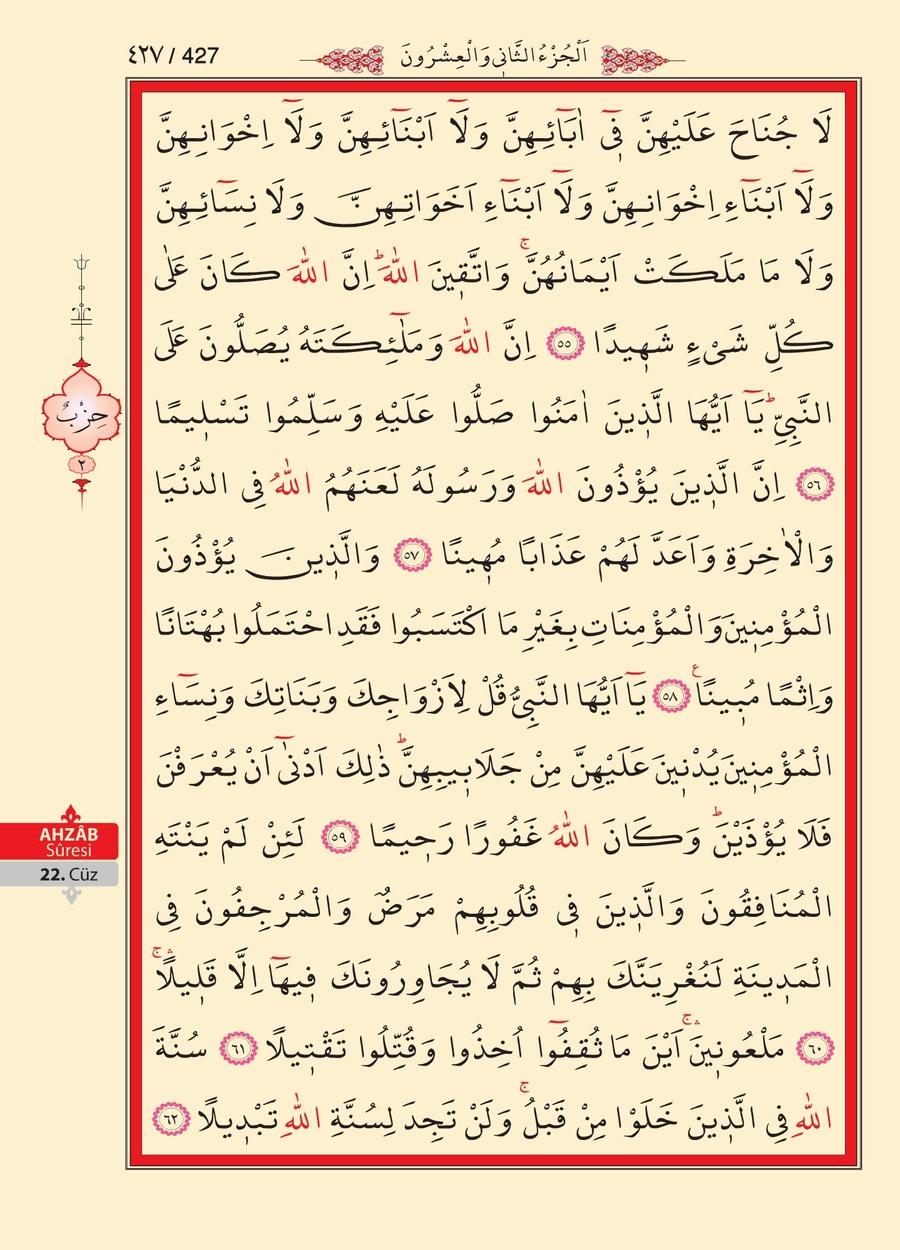 ٤٢٧ / 427
اَلْجُزْءُ الثَّانِي وَالْعِشْرُونَ
لَا جُنَاحَ عَلَيْهِنَّ فٓي اٰبَٓائِهِنَّ وَلَٓا اَبْنَٓائِهِنَّ وَلَٓا اِخْوَانِهِنَّ
وَلَٓا اَبْنَٓاءِ اِخْوَانِهِنَّ وَلَٓا اَبْنَٓاءِ اَخَوَاتِهِنَّ وَلَا نِسَٓائِهِنَّ
وَلَا مَا مَلَكَتْ اَيْمَانُهُنَّۚ وَاتَّقٖينَ اللّٰهَؕ اِنَّ اللّٰهَ كَانَ عَلٰى
كُلِّ شَیْءٍ شَهٖيدًا ﴿٥٥﴾ اِنَّ اللّٰهَ وَمَلٰٓئِكَتَهُ يُصَلُّونَ عَلَى
النَّبِيِّؕ يَٓا اَيُّهَا الَّذٖينَ اٰمَنُوا صَلُّوا عَلَيْهِ وَسَلِّمُوا تَسْلٖيمًا
﴿٥٦﴾ اِنَّ الَّذٖينَ يُؤْذُونَ اللّٰهَ وَرَسُولَهُ لَعَنَهُمُ اللّٰهُ فِي الدُّنْيَا
وَالْاٰخِرَةِ وَاَعَدَّ لَهُمْ عَذَابًا مُهٖينًا ﴿٥٧﴾ وَالَّذٖينَ يُؤْذُونَ
الْمُؤْمِنٖينَ وَالْمُؤْمِنَاتِ بِغَيْرِ مَا اكْتَسَبُوا فَقَدِ احْتَمَلُوا بُهْتَانًا
وَاِثْمًا مُبٖينًاࣖ ﴿٥٨﴾ يَٓا اَيُّهَا النَّبِيُّ قُلْ لِاَزْوَاجِكَ وَبَنَاتِكَ وَنِسَٓاءِ
الْمُؤْمِنٖينَ يُدْنٖينَ عَلَيْهِنَّ مِنْ جَلَابٖيبِهِنَّؕ ذٰلِكَ اَدْنٰٓى اَنْ يُعْرَفْنَ
فَلَا يُؤْذَيْنَؕ وَكَانَ اللّٰهُ غَفُورًا رَحٖيمًا ﴿٥٩﴾ لَئِنْ لَمْ يَنْتَهِ
الْمُنَافِقُونَ وَالَّذٖينَ فٖي قُلُوبِهِمْ مَرَضٌ وَالْمُرْجِفُونَ فِي
الْمَدٖينَةِ لَنُغْرِيَنَّكَ بِهِمْ ثُمَّ لَا يُجَاوِرُونَكَ فٖيهَٓا اِلَّا قَلٖيلًاۛۚ
﴿٦٠﴾ مَلْعُونٖينَۛۚ اَيْنَ مَا ثُقِفُٓوا اُخِذُوا وَقُتِّلُوا تَقْتٖيلًا ﴿٦١﴾ سُنَّةَ
اللّٰهِ فِي الَّذٖينَ خَلَوْا مِنْ قَبْلُۚ وَلَنْ تَجِدَ لِسُنَّةِ اللّٰهِ تَبْدٖيلًا ﴿٦٢﴾
حِزْبٌ
٢
AHZÂB
Sûresi
22. Cüz